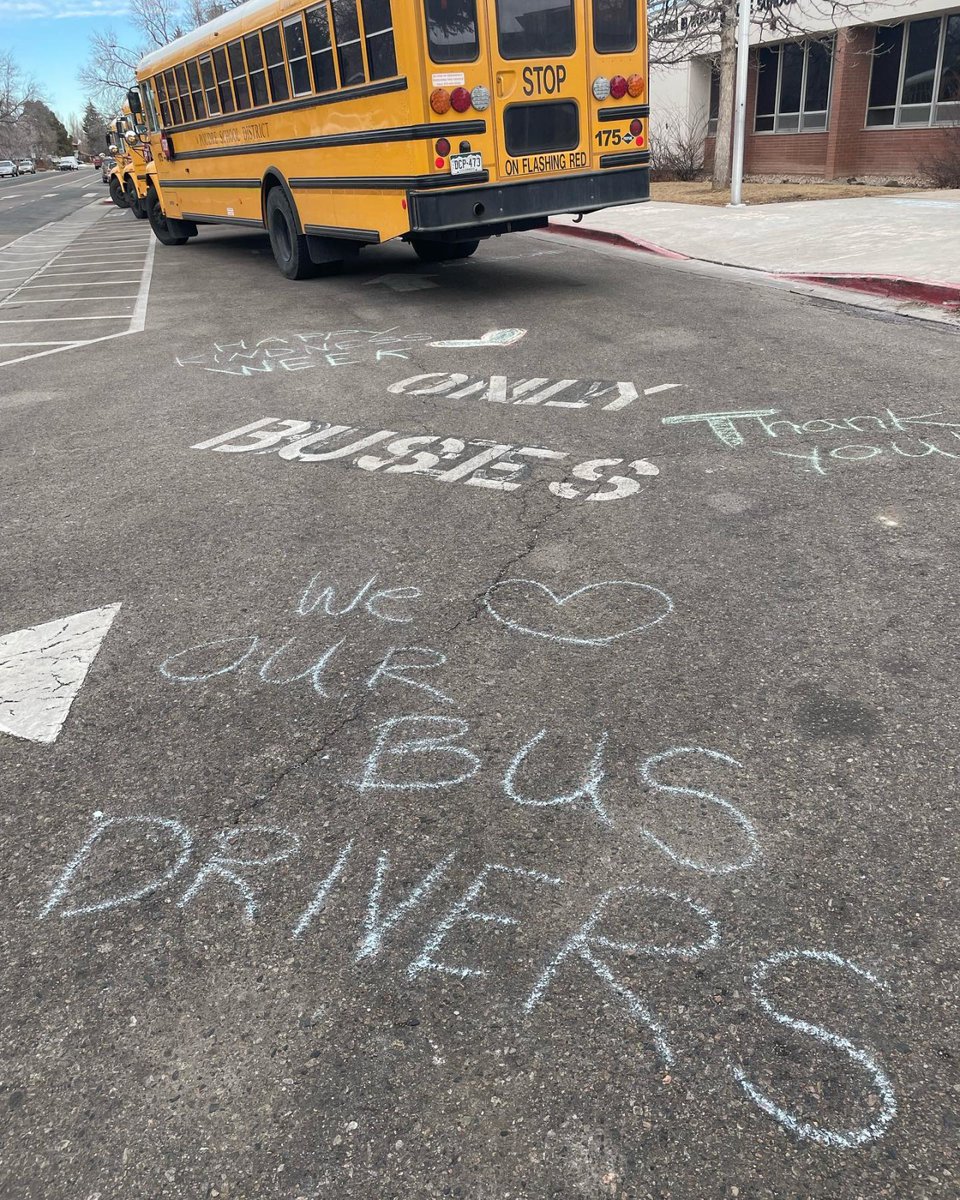 STOP
ON FLASHING RED
175
POUDRE SCHOOL DISTRICT
DCP-473
HAPPY
KINDNESS
WEEK
ONLY
BUSES
Thank
you
We
OUR
BUS
DRIVERS